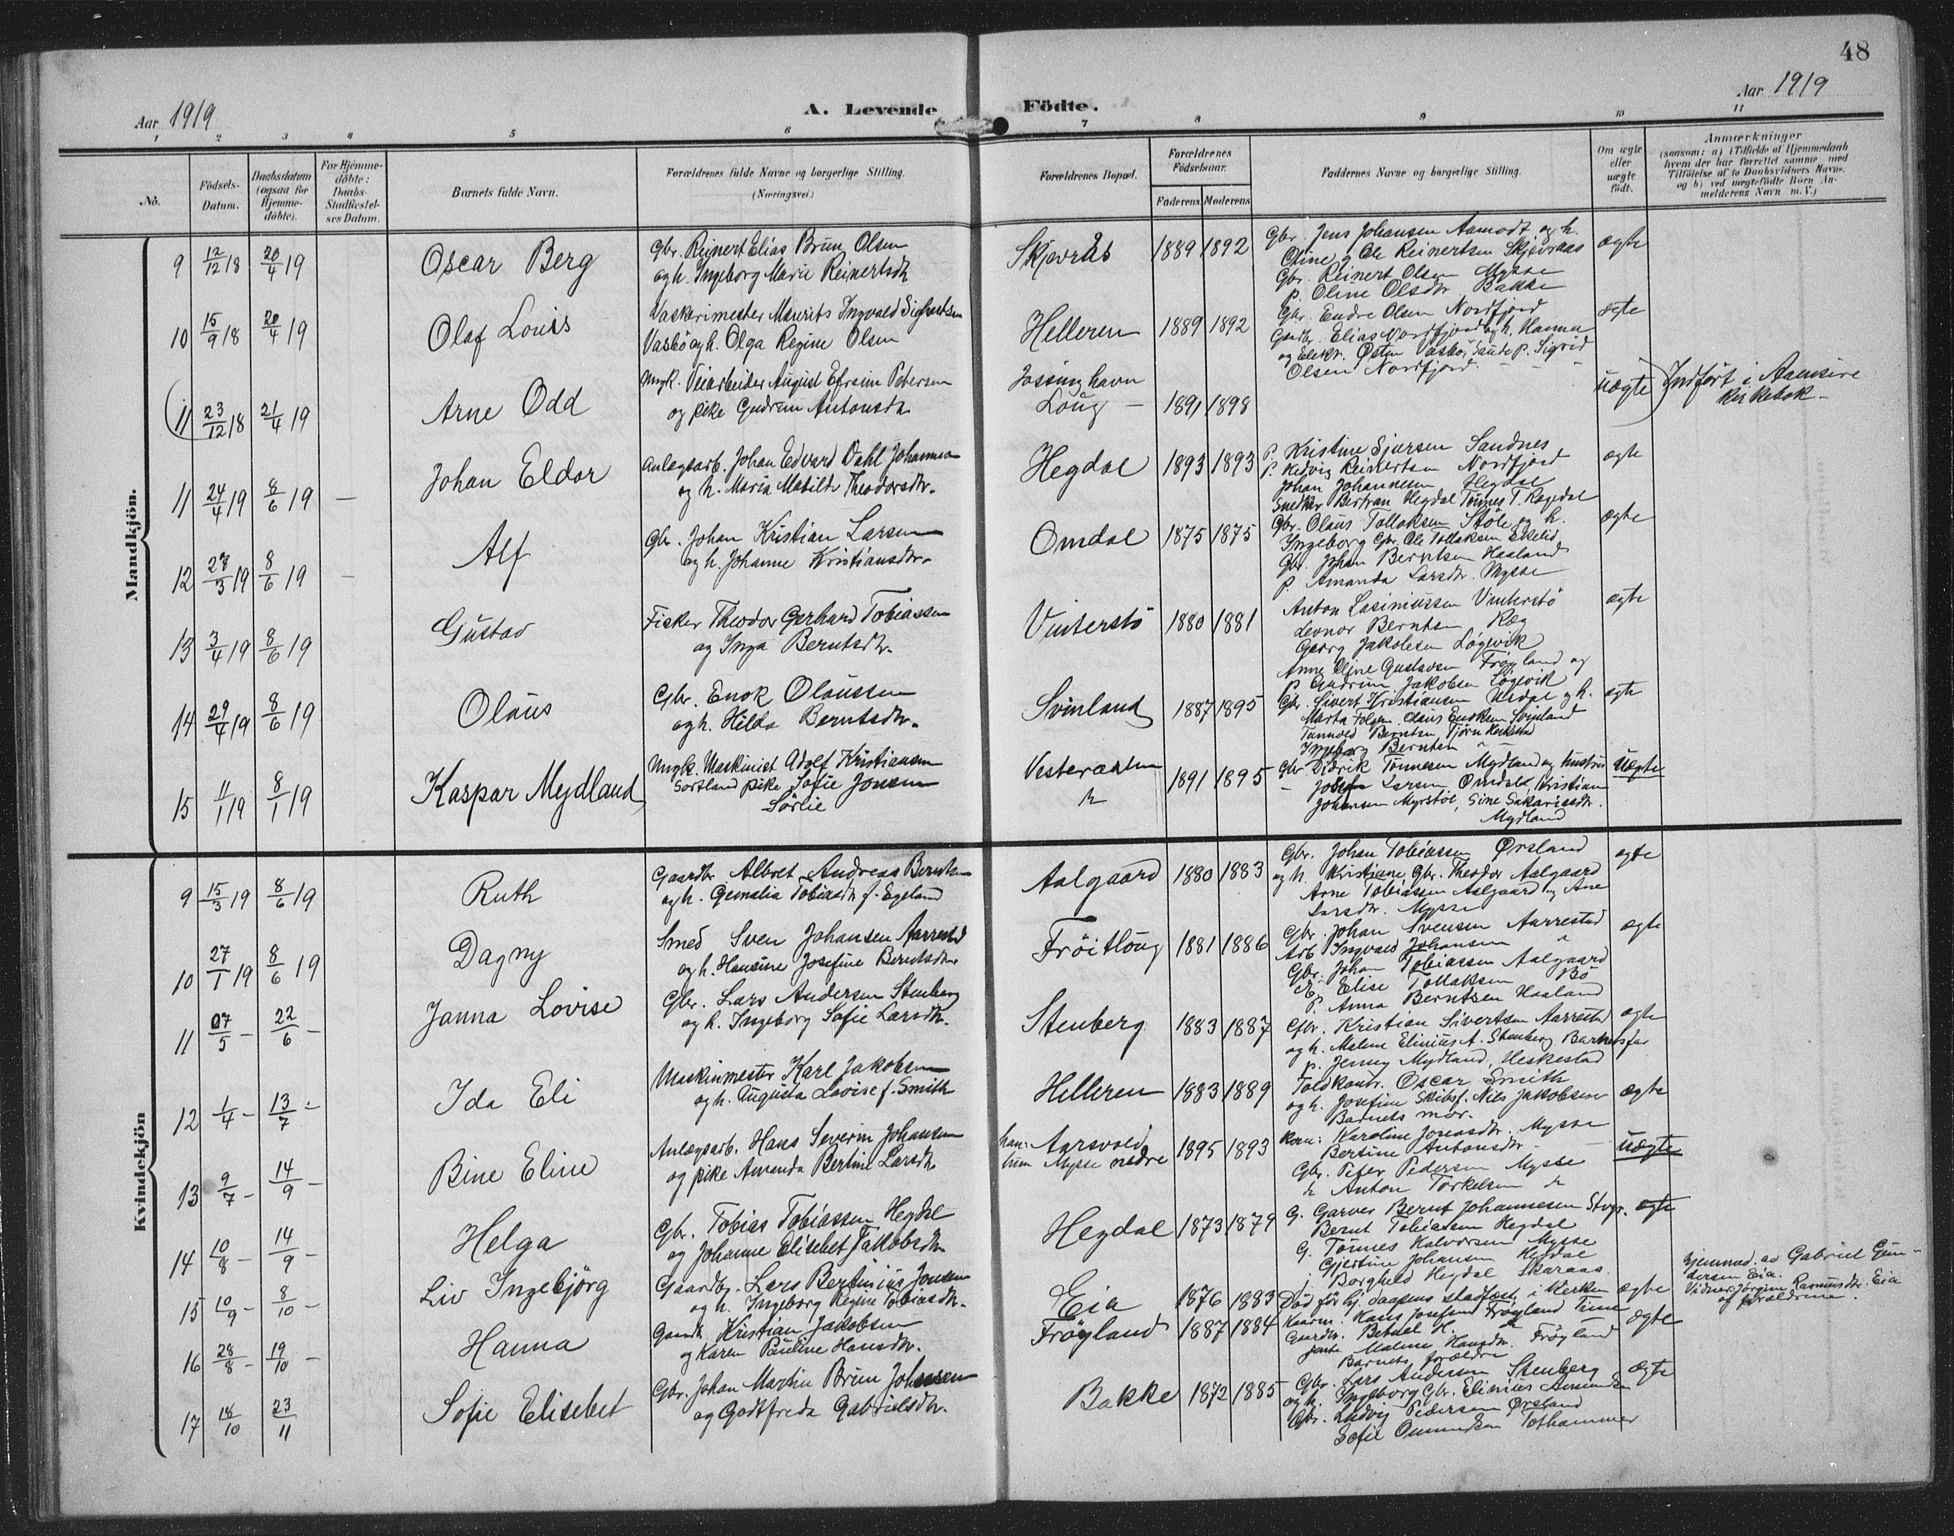 48
Aar 1919
A. Levende Födte.
Aar 1919
1 2 3 4 5 6 7 8 9 10 11
No.
Födsels-Datum.
Daabsdatum (ogsaa for Hjemmedöbte).
For Hjemmedöbte: Daabs-Stadfæstelses Datum.
Barnets fulde Navn.
Forældrenes fulde Navne og borgerlige Stilling.
(Næringsvei.)
Forældrenes Bopæl.
Forældrenes Födselsaar.
Faderens Moderens
Faddernes Navne og borgerlige Stilling.
Om ægte eller uægte födt.
Anmærkninger
(saasom: a) i Tilfælde af Hjemmedaab hvem der har forrettet samme med Tilföielse af to Daabsvidners Navne. og b) ved uægtefödte Börn Anmelderens Navn m. V.)
Mandkjön.
9 12/12 18 20/4 19 Oscar Berg
Gbr. Reinert Elias Brun Olsen
og h. Ingeborg Marie Reinertsdtr
Skjevrås 1889 1892
Gbr. Jens Johansen Aamodt og h.
Oline, Ole Reinertsen Skjevraas
Gbr. Reinert Olsen Mysse
p. Oline Olsdtr Bakke
ægte
10 15/9 18 20/4 19 Olaf Louis
Vaskerimester Maurits Ingvald Sigfredsen
Vasbö og h. Olga Regine Olsen
Helleren 1889 1892
Gbr. Endre Olsen Nordfjord
Gaardbr. Elias Nordfjord og h. Hanna
og Elektr. Østen Vasbø, Saude p. Sigrid
Olsen Nordfjord.
ægte
11 23/12 18 21/4 19 Arne Odd
Ungk. Veiarbeider August Efraim Petersen
og pike Gudrun Antonsdtr
Jössinghavn
Loug – 1891 1898
uægte
Indfört i Aamsire
kirkebok –
11 24/4 19 8/6 19 – Johan Eldor
Anlægsarb. Johan Edvard Dahl Johannesen
og h. Maria Matilde Theodorsdtr.
Hegdal 1893 1893
P. Kristine Sjursen Sandnes
P. Hedvig Reinertsen Nordfjord
Johan Johannesen Hegdal
Snedker Bertran Hegdal Tönnes T. Ragedal
ægte
12 27/3 19 8/6 19 – Alf
Gbr. Johan Kristian Larsen
og h. Johanne Kristiansdtr.
Omdal 1875 1875
Gbr. Olaus Tollaksen Støle og h.
Ingeborg Gbr. Ole Tollaksen Eikelid
Gbr. Johan Berntsen Haaland
p. Amanda Larsdtr. Mysse
ægte
13 3/4 19 8/6 19 Gustav
Fisker Theodor Gerhard Tobiassen
og Inga Berntsdtr.
Vinterstö 1880 1881
Anton Lasiniussen Vinterstö
Leonor Berntsen Ræg
Georg Jakobsen Løgevik
Anne Oline Gustavsen Frøyland og
p. Gudrun Jakobsen Løgevik
ægte
14 29/4 19 8/6 19 Olaus
Gbr. Enok Olaussen
og h. Hilda Berntsdtr.
Svinland 1887 1895
Gbr. Sivert Kristiansen Urdal og h.
Marta Olaus Enoksen Svinland
Berntsen
Ingeborg Berntsen
ægte
15 11/1 19 8/1 19 Kaspar Mydland
Ungk. Maskinist Adolf Kristiansen
Sortland pike Sofie Jonsen
Sörlie
Vesteraalen 1891 1895
Gbr Didrik Tönnesen Mydland og hustru
– Josefe Larsen Omdal, Kristian
Johansen Myrstöl, Sine Sakariasdtr.
Mydland
uægte
Kvindekjön
9 15/3 19 8/6 19 Ruth
Gaardbr Albret Andreas Berntsen
og h. Gemalia Tobiasdtr f. Egeland
Aalgaard 1880 1883
Gbr. Johan Tobiassen Ørsland
og h. Kristiane, Gbr. Theodor Aalgaard
Arne Tobiassen Aalgaard og Ane
Larsdtr. Mysse
ægte
10 27/1 19 8/6 19 Dagny
Smed Sven Johansen Aarrestad
og h. Hansine Josefine Berntsdtr
Fröitloug 1881 1886
Gbr. Johan Svensen Aarrestad
Arb Ingvald Johansen "
Gbr. Johan Tobiassen Aalgaard
Elise Tollaksen Bö
P. Anna Berntsen Haaland
ægte
11 07/5 – 22/6 – Janna Lovise
Gbr. Lars Andersen Stenberg
og h. Ingeborg Sofie Larsdtr.
Stenberg 1883 1887
Gbr. Kristian Sivertsen Aarrestad
og h. Malene Elinius A. Stenberg Barnetsfar
p. Jenny Mydland, Heskestad
ægte
12 1/4 – 13/7 – Ida Eli
Maskinmester Karl Jakobsen
og h. Augusta Lovise f. Smith
Helleren 1883 1889
Toldkontr. Oscar Smith
og h. Josefine Skibsf. Nils Jakobsen
Barnets mor.
ægte
13 9/7 – 14/9 – Bine Eline
Anlægsarb. Hans Severin Johansen
og pike Amanda Bertine Larsdtr
han: Aarsvold
hun Mysse nedre 1895 1893
Kone: Karoline Jonasdtr. Mysse
Bertine Antonsdtr –
Gbr. Peter Pedersen Mysse
Anton Torkelsen
uægte
14 10/8 – 14/9 – Helga
Gbr. Tobias Tobiassen Hegdal
og Johanne Elisebet Jakobsdtr
Hegdal 1873 1879
G. Garver Bernt Johannesen Stvgr.
Bernt Tobiassen Hegdal
G. Tönnes Halvorsen Mysse
Gjertine Johansen Hegdal
Borghild Hegdal Skaraas
ægte
15 10/9 – 8/10 – Liv Ingebjörg
Gaardbr. Lars Bertinius Jonsen
og h. Ingeborg Regine Tobiasdtr.
Eia 1876 1883
Död för hj. daapens stadfest. i kirken
ægte
Hjemmed. av Gabriel Gundersen Eia.
Vidner Jörgine Rasmusdtr. Eia
af forældrene.
16 28/8 – 19/10 – Hanna
Gaardbr Kristian Jakobsen
og Karen Pauline Hansdtr.
Fröyland 1887 1884
Hans Josefsen Fröyland Time
Gaardbr. Betuel H.
jente Malene Hansdtr. Fröyland
Barnets forældre
ægte
17 18/10 23/11 Sofie Elisebet
Gbr. Johan Martin Brun Johansen
og Godtfreda Gabrielsdtr.
Bakke 1872 1885
Gbr. Lars Andersen Stenberg
og h. Ingeborg, Gbr. Elinius Amundsen
Gbr. Ludvig Pedersen Ørsland
Sofie Omundsen Tothammer
ægte